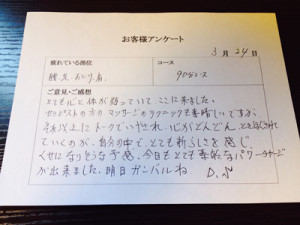 お客様アンケート
3月24日
疲れている部位
コース
腰、足、おしり、肩
90分コース
ご意見・ご感想
とても心と体が弱っていて ここに来ました。
セラピストの方の マッサージのテクニックも素晴しいですが、
それ以上にトークでいやされ、心がどんどん
ていくのが、自分の中で、とても新らしさを感じ、
くせになりそうな予感。今日もとても素敵なパワーチャージ
が出来ました。明日ガンバルね